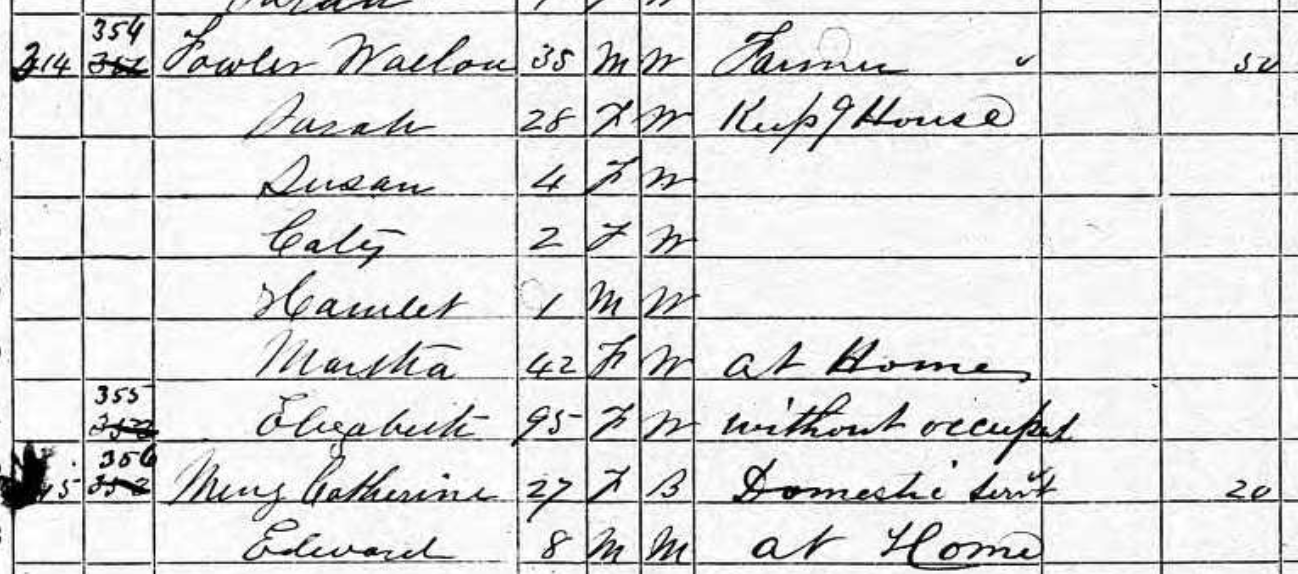 Sarah
354
314 Fowler 35 M W Farmer 50
Sarah 28 F W Keepg House
Susan 4 F W
Caty 2 F W
Hamlet 1 M W
Martha 42 F W at Home
355
352 Elizabeth 95 F W without occupat
356
352 Catherine 27 F B Domestic Servt 20
Edward 8 M M at Home